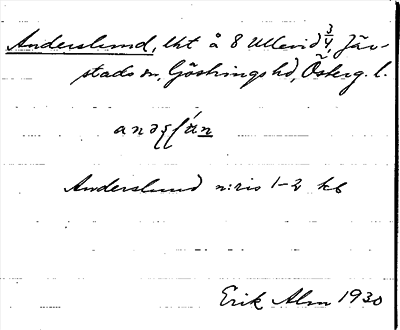 Anderslund, lht å 8 Ullevid 3/4, Jär-
stads sn, Göstrings hd, Österg. l.
Anderslund n:ris 1-2 kb
Erik Alm 1930